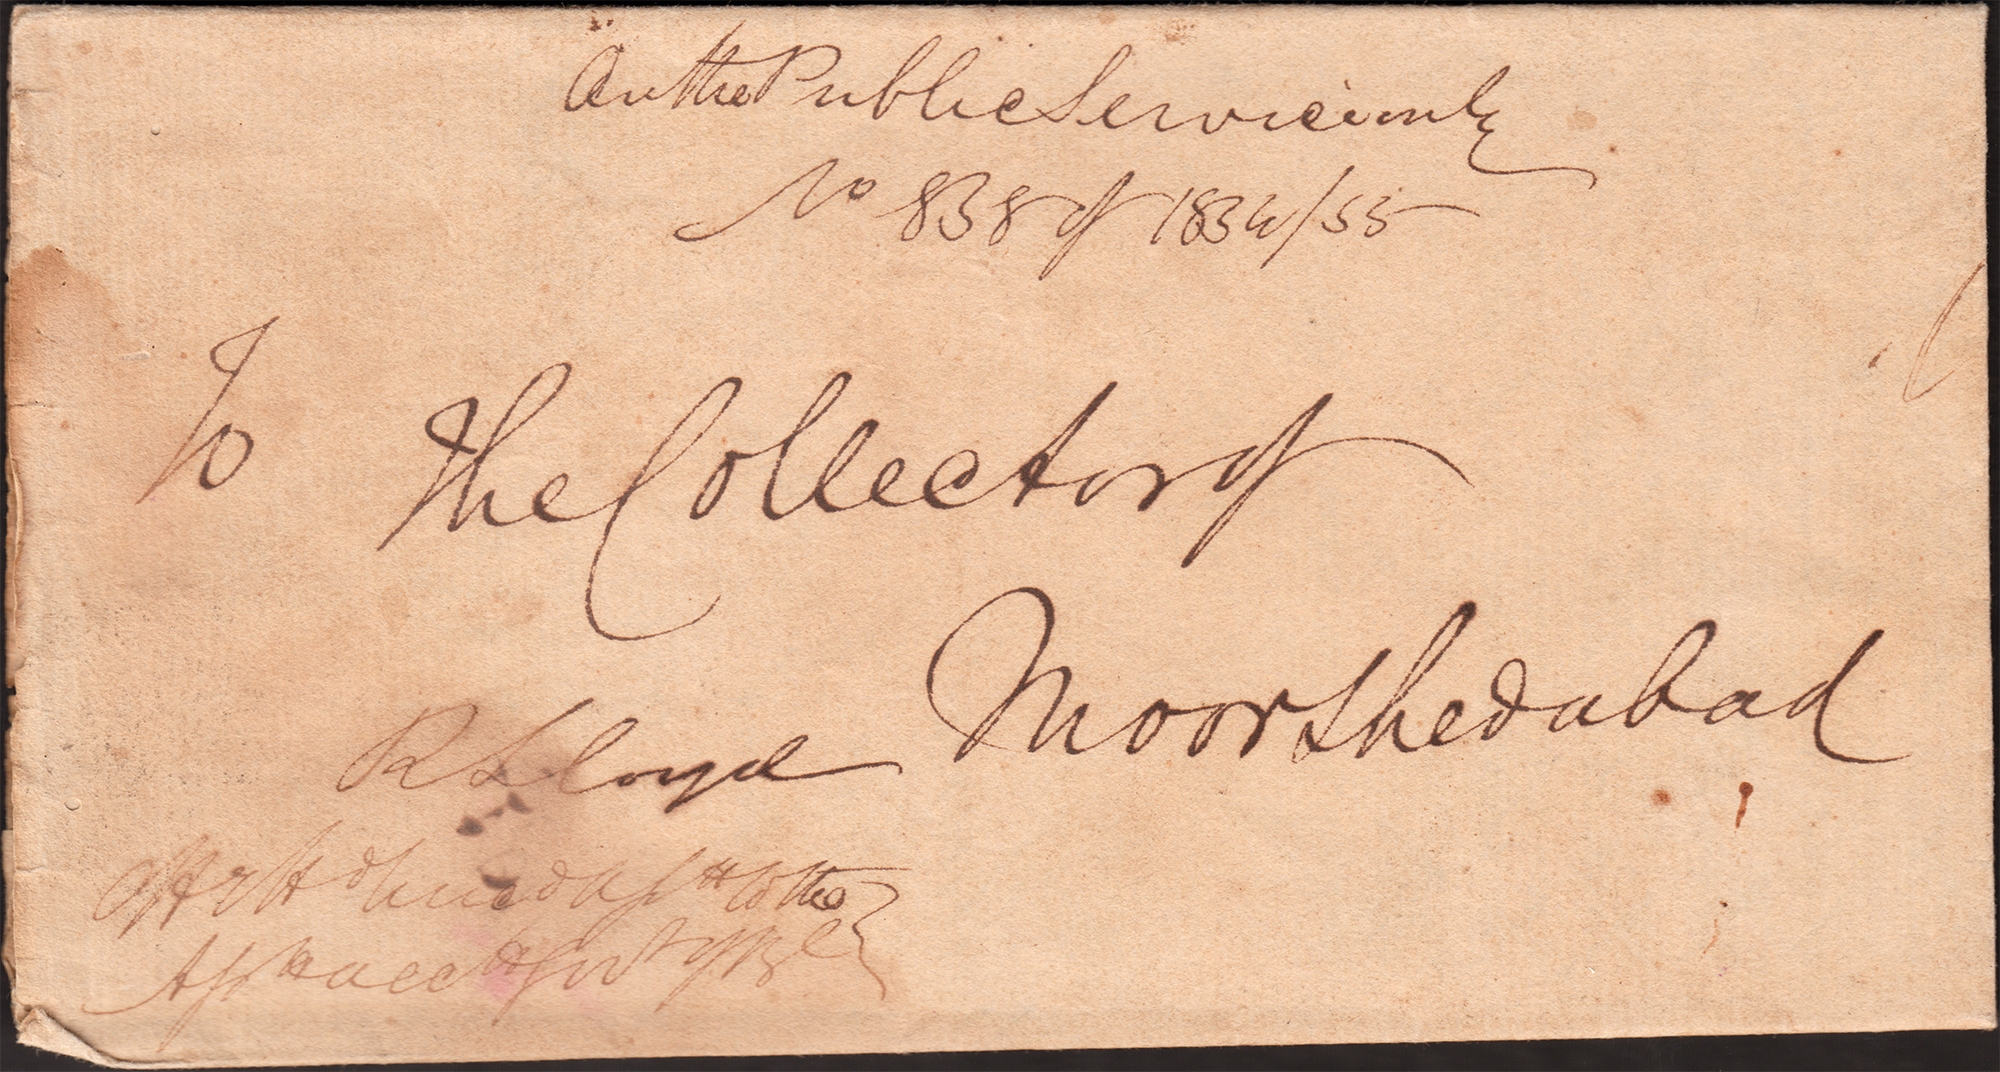 On the Public Service only
No 838 of 1834/35
To
The Collector of
Moorshedabad
R Lloyd
to the